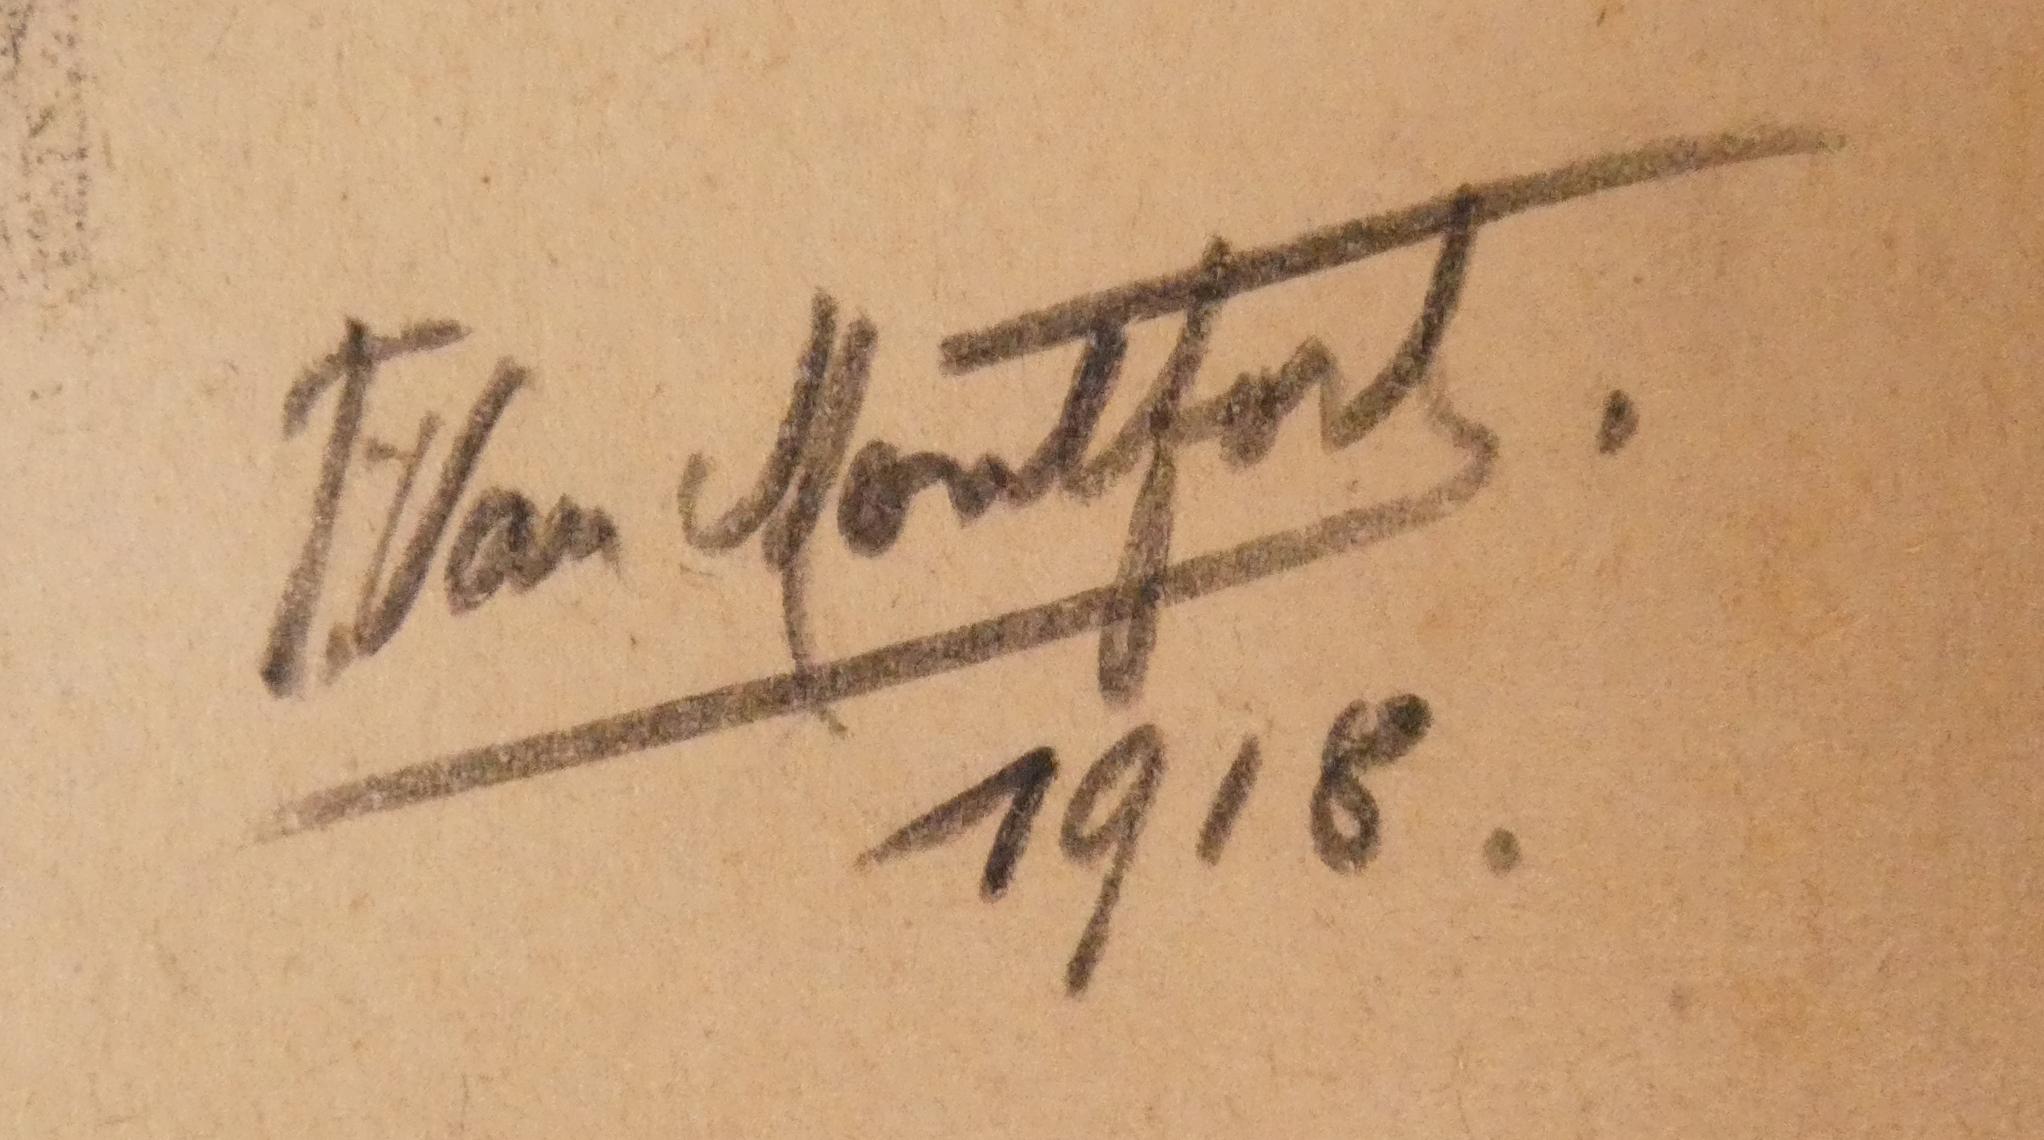 F. Van Montfort.
1918.